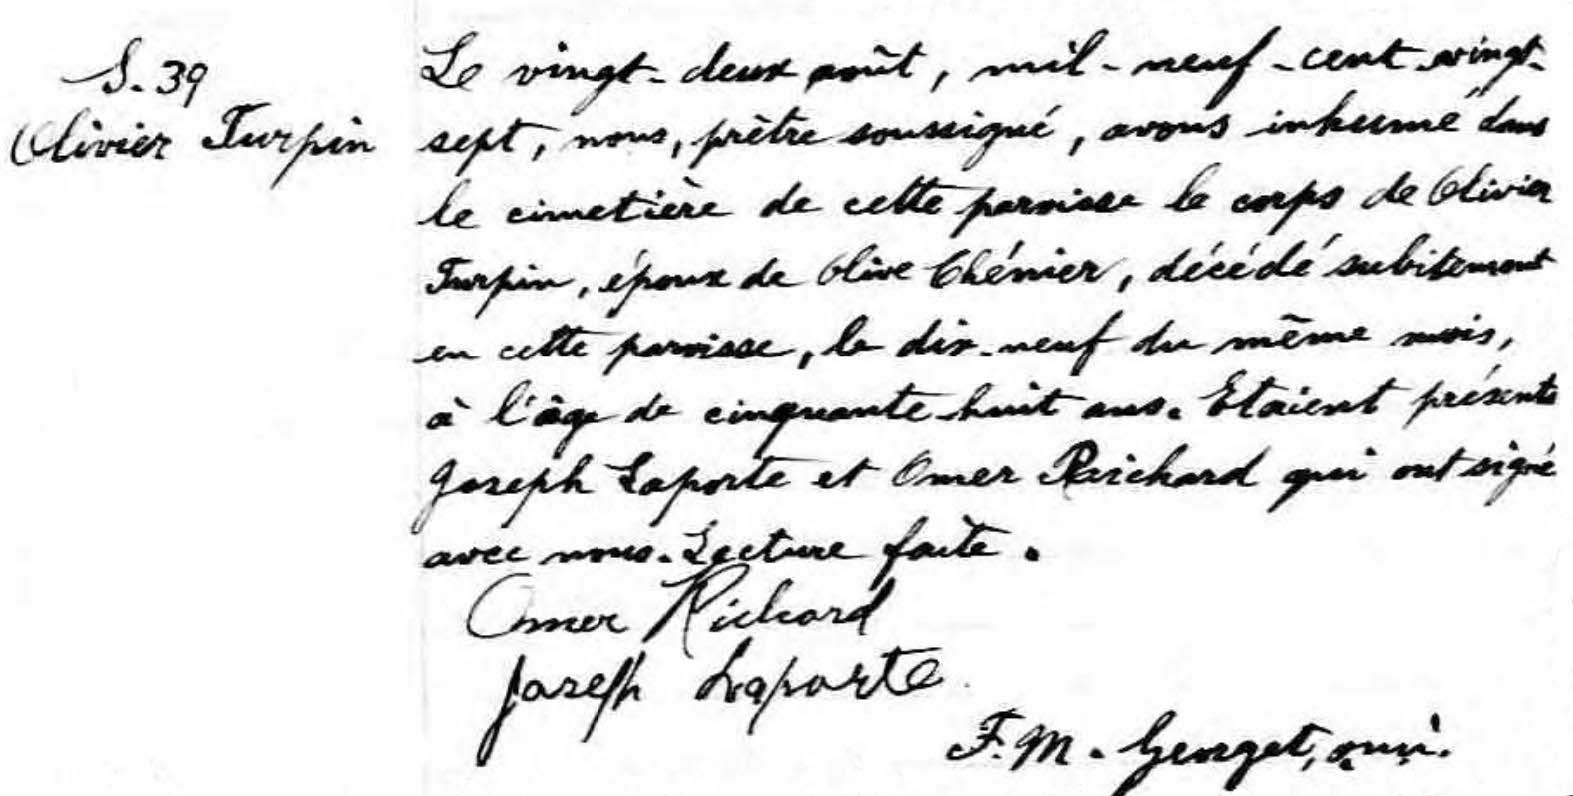 S. 39
Olivier Turpin
Le vingt-deux août, mil-neuf-cent-vingt-
sept, nous, prêtre soussigné, avons inhumé dans
le cimetière de cette paroisse le corps de Olivier
Turpin, époux de Olive Chénier, décédé subitement
en cette paroisse, le dix-neuf du même mois,
à l'âge de cinquante-huit ans. Etaient présents
Joseph Laporte et Omer Richard qui ont signé
avec nous. Lecture faite.
Omer Richard
Joseph Laporte
F. M. Georget,